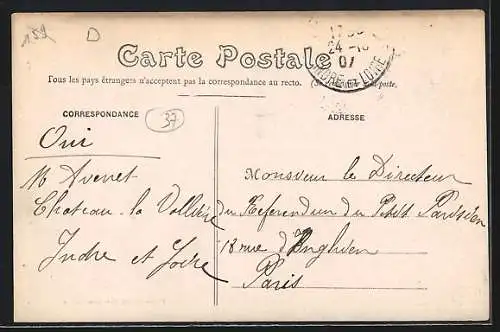 159
D
Carte Postale
Tous les pays étrangers n'acceptent pas la correspondance au recto.
24-10
07
INDRE ET LOIRE
CORRESPONDANCE
37
ADRESSE
Oui
Avenet
Chateau-la Vallière
Indre et Loire
Monsieur le Directeur
du Referendum du Petit Parisien
18 rue d'Enghien
Paris